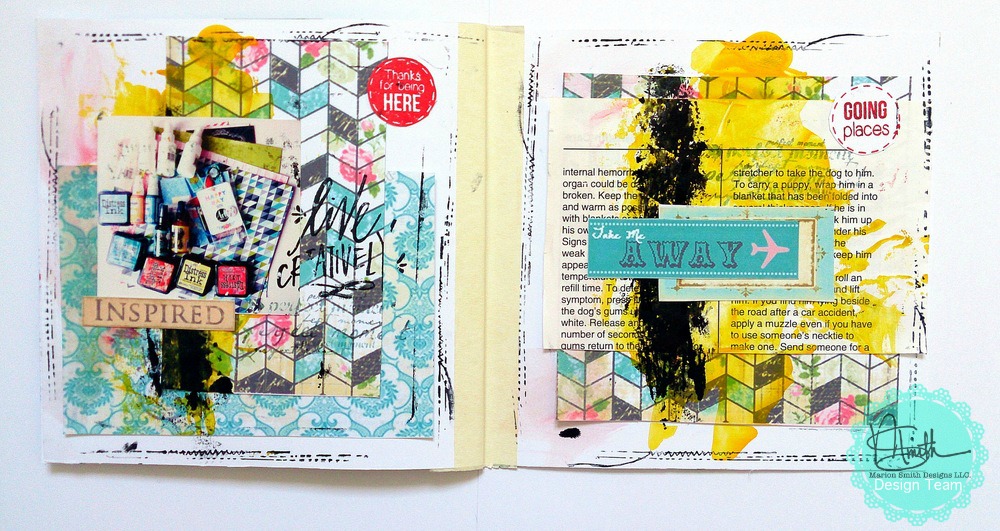 Thanks
for being
HERE
Distress
Ink
Distress
Ink
live
CREATIVELY
INSPIRED
GOING
places
internal hemorrh
organ could be da
broken. Keep the
and warm as pos
with blankets
his ow
Signs
weak
appea
temperature,
refill time. To dete
symptom, press
the dog's gums u
white. Release an
number of second
gums return to the
stretcher to take the dog to him.
To carry a puppy, wrap him in a
blanket that has been folded into
he is in
k him up
under his
keep him
roll an
and lift
him. If you find him lying beside
the road after a car accident,
apply a muzzle even if you have
to use someone's necktie to
make one. Send someone for a
Take Me
AWAY
Smith
Marion Smith Designs LLC.
Design Team